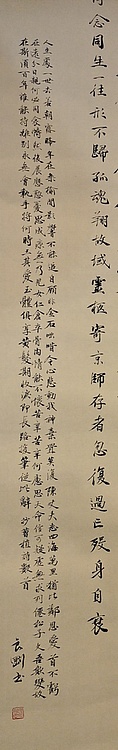 何念同生一往形不歸孤魂翔故域靈柩寄京師存者忽復過亡歿身自衰
人生處一世去若朝露晞年在桑榆間影響不能追自顧非金石咄唶令心悲動我神棄置莫復陳丈夫志四海萬里猶比鄰恩愛苟不虧
在遠分日親何必同衾幬然後展慇懃憂思成疾疢無乃兒女仁倉卒骨肉情能不懷苦辛苦辛何慮思天命信可疑虛無求列僊松子久吾欺變故
在斯須百年誰能持離別永無會執手將何時王其愛玉體俱享黃髮期收淚即長路援筆從此辭 抄曹植詩數首
良剛書